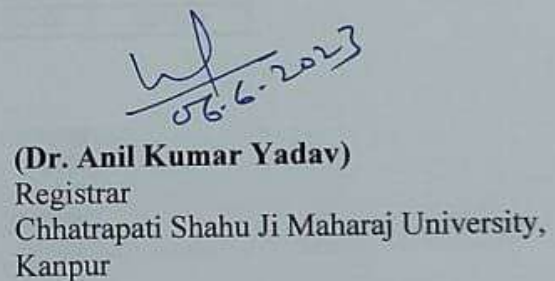 06.6.2023
(Dr. Anil Kumar Yadav)
Registrar
Chhatrapati Shahu Ji Maharaj University,
Kanpur